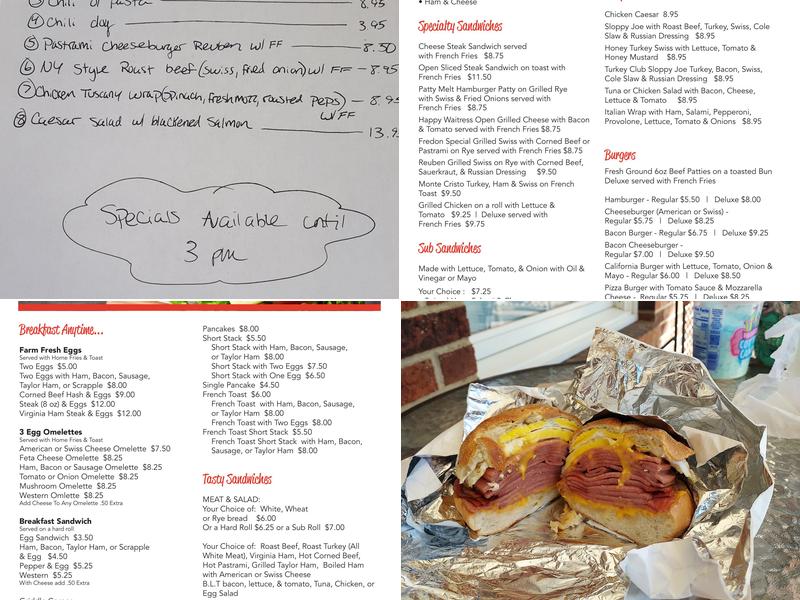 ③ Chili or pasta 8.95
④ Chili day 3.95
⑤ Pastrami Cheeseburger Reuben w/ FF 8.50
⑥ NY Style Roast beef (swiss, fried onion) w/ FF - 8.95
⑦ Chicken Tuscany wrap (Spinach, fresh mozz, roasted peps) - 8.95
w/ FF
⑧ Caesar salad w/ blackened salmon
13.9
Specials Available until
3 pm
• Ham & Cheese
Specialty Sandwiches
Cheese Steak Sandwich served
with French Fries $8.75
Open Sliced Steak Sandwich on toast with
French Fries $11.50
Patty Melt Hamburger Patty on Grilled Rye
with Swiss & Fried Onions served with
French Fries $8.75
Happy Waitress Open Grilled Cheese with Bacon
& Tomato served with French Fries $8.75
Fredon Special Grilled Swiss with Corned Beef or
Pastrami on Rye served with French Fries $8.75
Reuben Grilled Swiss on Rye with Corned Beef,
Sauerkraut, & Russian Dressing $9.50
Monte Cristo Turkey, Ham & Swiss on French
Toast $9.50
Grilled Chicken on a roll with Lettuce &
Tomato $9.25 | Deluxe served with
French Fries $9.75
Sub Sandwiches
Made with Lettuce, Tomato, & Onion with Oil &
Vinegar or Mayo
Your Choice : $7.25
Chicken Caesar 8.95
Sloppy Joe with Roast Beef, Turkey, Swiss, Cole
Slaw & Russian Dressing $8.95
Honey Turkey Swiss with Lettuce, Tomato &
Honey Mustard $8.95
Turkey Club Sloppy Joe Turkey, Bacon, Swiss,
Cole Slaw & Russian Dressing $8.95
Tuna or Chicken Salad with Bacon, Cheese,
Lettuce & Tomato $8.95
Italian Wrap with Ham, Salami, Pepperoni,
Provolone, Lettuce, Tomato & Onions $8.95
Burgers
Fresh Ground 6oz Beef Patties on a toasted Bun
Deluxe served with French Fries
Hamburger - Regular $5.50 | Deluxe $8.00
Cheeseburger (American or Swiss) -
Regular $5.75 | Deluxe $8.25
Bacon Burger - Regular $6.75 | Deluxe $9.25
Bacon Cheeseburger -
Regular $7.00 | Deluxe $9.50
California Burger with Lettuce, Tomato, Onion &
Mayo - Regular $6.00 | Deluxe $8.50
Pizza Burger with Tomato Sauce & Mozzarella
Cheese - Regular $5.75 | Deluxe $8.25
Breakfast Anytime...
Farm Fresh Eggs
Served with Home Fries & Toast
Two Eggs $5.00
Two Eggs with Ham, Bacon, Sausage,
Taylor Ham, or Scrapple $8.00
Corned Beef Hash & Eggs $9.00
Steak (8 oz) & Eggs $12.00
Virginia Ham Steak & Eggs $12.00
3 Egg Omelettes
Served with Home Fries & Toast
American or Swiss Cheese Omelette $7.50
Feta Cheese Omelette $8.25
Ham, Bacon or Sausage Omelette $8.25
Tomato or Onion Omelette $8.25
Mushroom Omelette $8.25
Western Omlette $8.25
Add Cheese To Any Omelette .50 Extra
Breakfast Sandwich
Served on a hard roll
Egg Sandwich $3.50
Ham, Bacon, Taylor Ham, or Scrapple
& Egg $4.50
Pepper & Egg $5.25
Western $5.25
With Cheese add .50 Extra
Pancakes $8.00
Short Stack $5.50
Short Stack with Ham, Bacon, Sausage,
or Taylor Ham $8.00
Short Stack with Two Eggs $7.50
Short Stack with One Egg $6.50
Single Pancake $4.50
French Toast $6.00
French Toast with Ham, Bacon, Sausage,
or Taylor Ham $8.00
French Toast with Two Eggs $8.00
French Toast Short Stack $5.50
French Toast Short Stack with Ham, Bacon,
Sausage, or Taylor Ham $8.00
Tasty Sandwiches
MEAT & SALAD:
Your Choice of: White, Wheat
or Rye bread $6.00
Or a Hard Roll $6.25 or a Sub Roll $7.00
Your Choice of: Roast Beef, Roast Turkey (All
White Meat), Virginia Ham, Hot Corned Beef,
Hot Pastrami, Grilled Taylor Ham, Boiled Ham
with American or Swiss Cheese
B.L.T bacon, lettuce, & tomato, Tuna, Chicken, or
Egg Salad